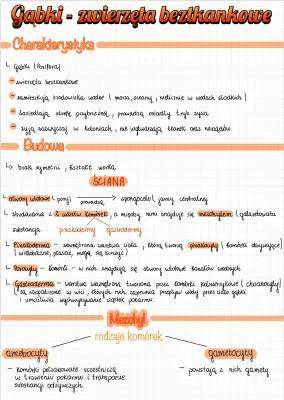 Gąbki - zwierzęta beztkankowe
Charakterystyka
Gąbki (Porifera)
zwierzęta beztkankowe
zamieszkują środowiska wodne (morza, oceany, nielicznie w wodach słodkich)
zasiedlają strefę przybrzeżną, prowadzą osiadły tryb życia
żyją zazwyczaj w koloniach, nie wytwarzają tkanek oraz narządów
Budowa
brak symetrii, kształt worka
ŚCIANA
otwory wlotowe (pory) prowadzą spongocelu, jamy centralnej
zbudowana z 2 warstw komórek, a między nimi znajduje się mezohyl (galaretowata
substancja
pinakoderma gastroderma
Pinakoderma - zewnętrzna warstwa ciała, którą tworzą pinakocyty (komórki okrywające)
(wielokątne, płaskie, mogą się kurczyć)
Porocyty - komórki - w nich znajdują się otwory wlotowe kanałów wodnych
Gastroderma - warstwa wewnętrzna tworzona przez komórki kołnierzykowe (choanocyty)
są zaopatrzone w wici, których ruch zapewnia przepływ wody przez ciało gąbki
i umożliwia wychwytywanie cząstek pokarmu.
Mezohyl
rodzaje komórek
amebocyty
gametocyty
komórki pełzakowate uczestniczą
w trawieniu pokarmu i transporcie
substancji odżywczych
powstają z nich gamety